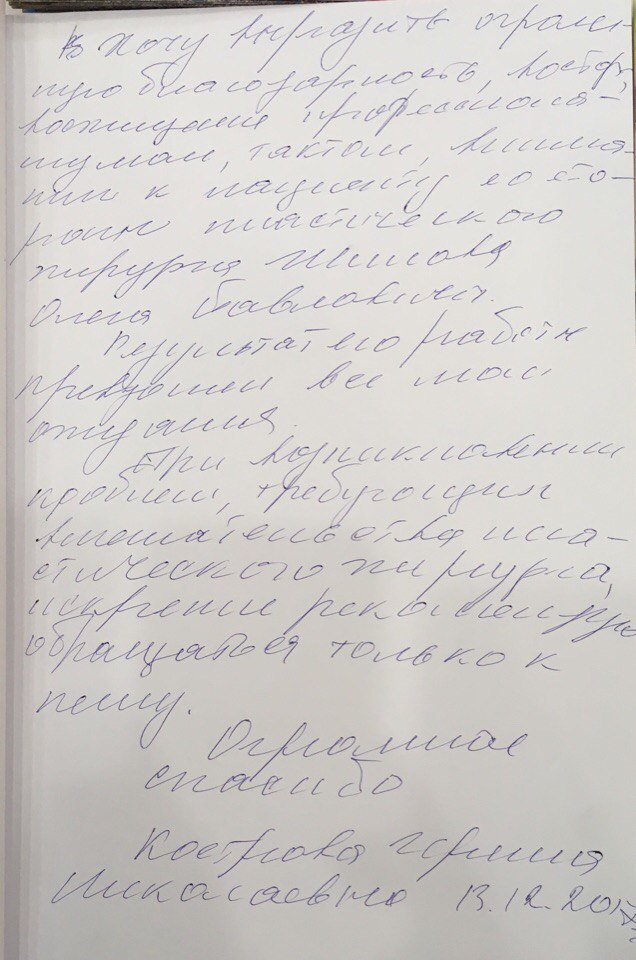 Я хочу выразить огром-
ную благодарность, восторг,
восхищение профессиона-
лизмом, тактом, внима-
нием к пациенту со сто-
роны пластического
хирурга
Олега Павловича.
Результат его работы
превзошел все мои
ожидания.
При возникновении
проблем, требующих
вмешательства пла-
стического хирурга,
искренне рекомендую
обращаться только к
нему.
Огромное
спасибо
Кострова
Николаевна 13.12.2017